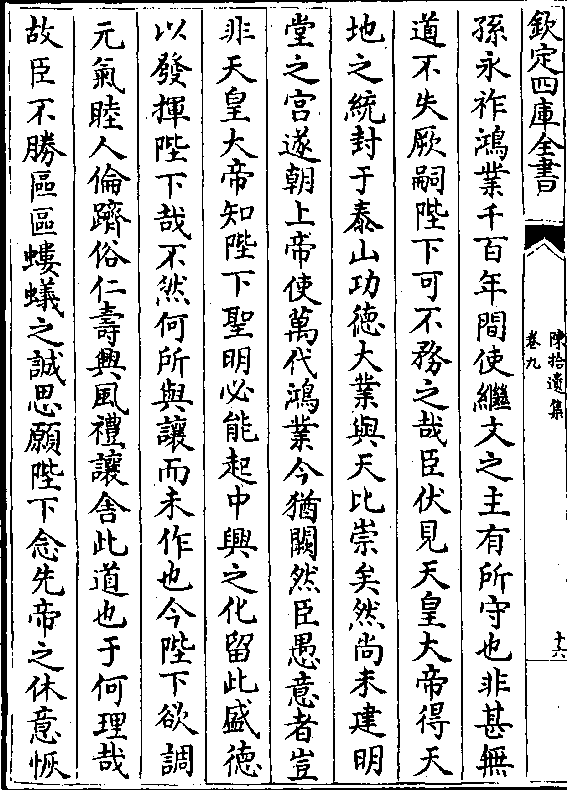 欽定四庫全書
陳拾遺集
卷九
十六
孫永祚鴻業千百年間使繼文之主有所守也非甚無
道不失厥嗣陛下可不務之哉臣伏見天皇大帝得天
地之統封于泰山功德大業與天比崇矣然尚未建明
堂之宮遂朝上帝使萬代鴻業今猶闕然臣愚意者豈
非天皇大帝知陛下聖明必能起中興之化留此盛德
以發揮陛下哉不然何所與讓而未作也今陛下欲調
元氣睦人倫躋俗仁壽興風禮讓舍此道也于何理哉
故臣不勝區區螻蟻之誠思願陛下念先帝之休意恢